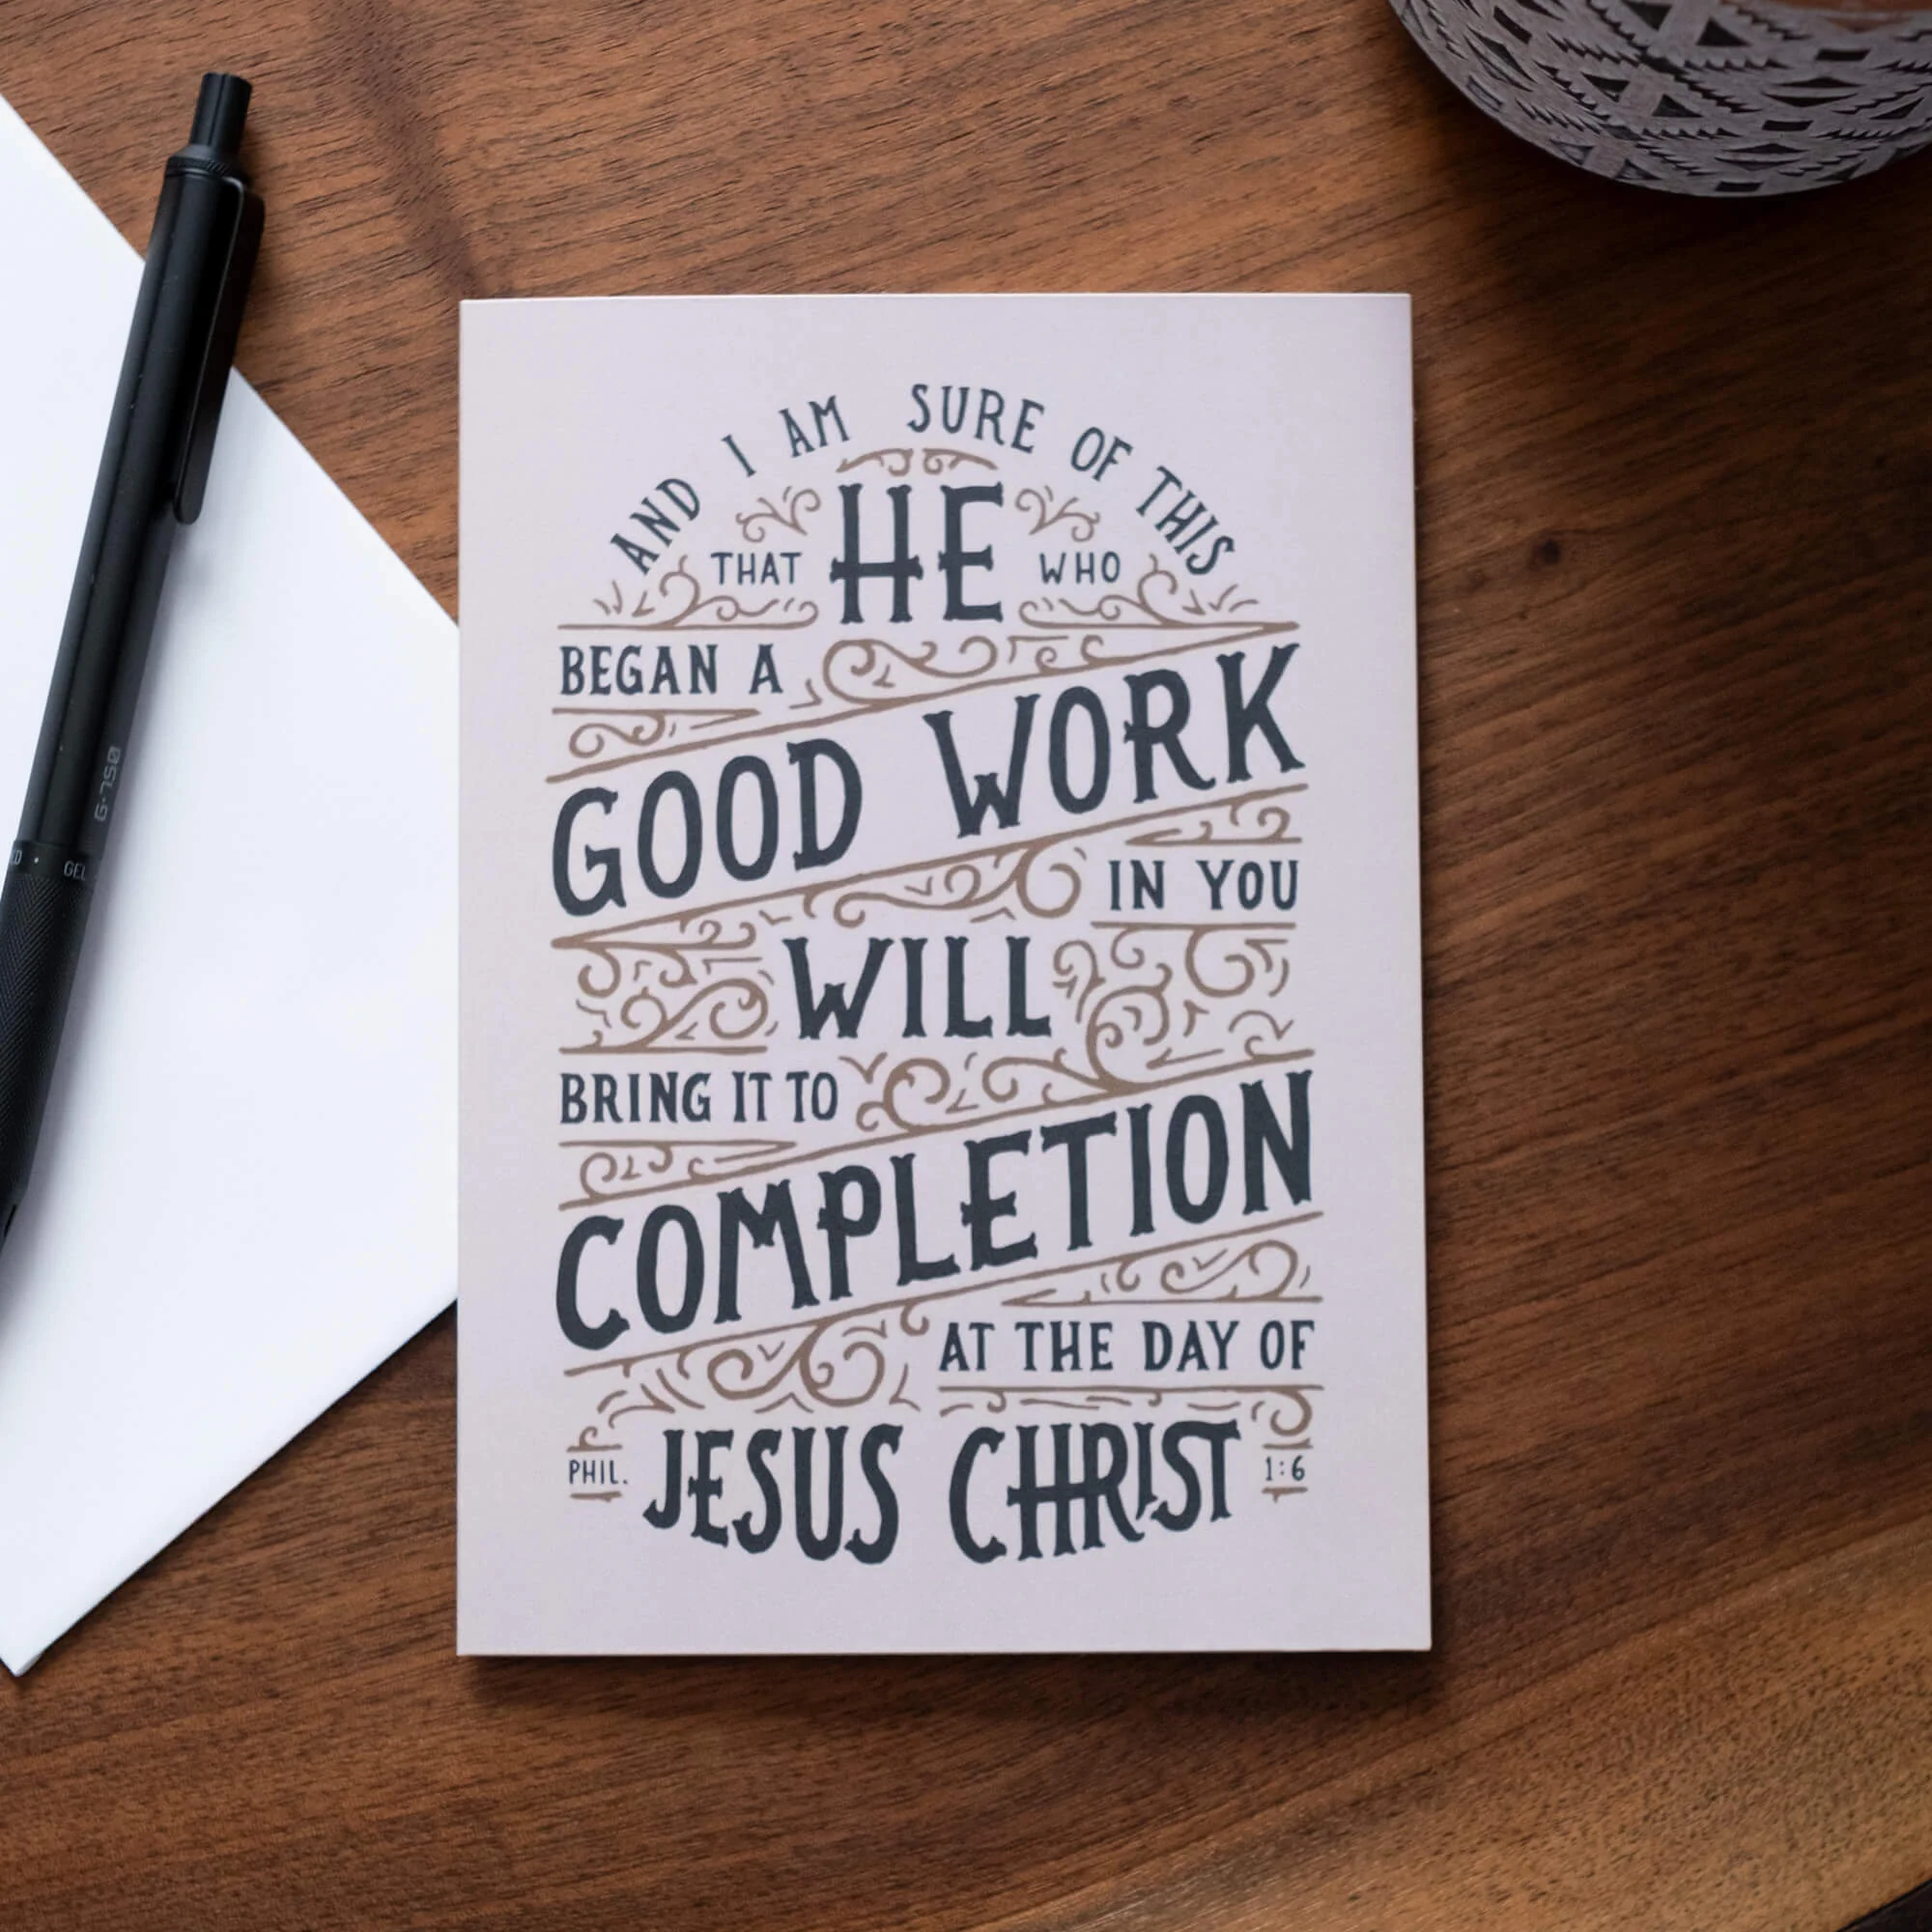 AND I AM SURE OF THIS
THAT HE WHO
BEGAN A
GOOD WORK
IN YOU
WILL
BRING IT TO
COMPLETION
AT THE DAY OF
PHIL. JESUS CHRIST 1:6
GEL